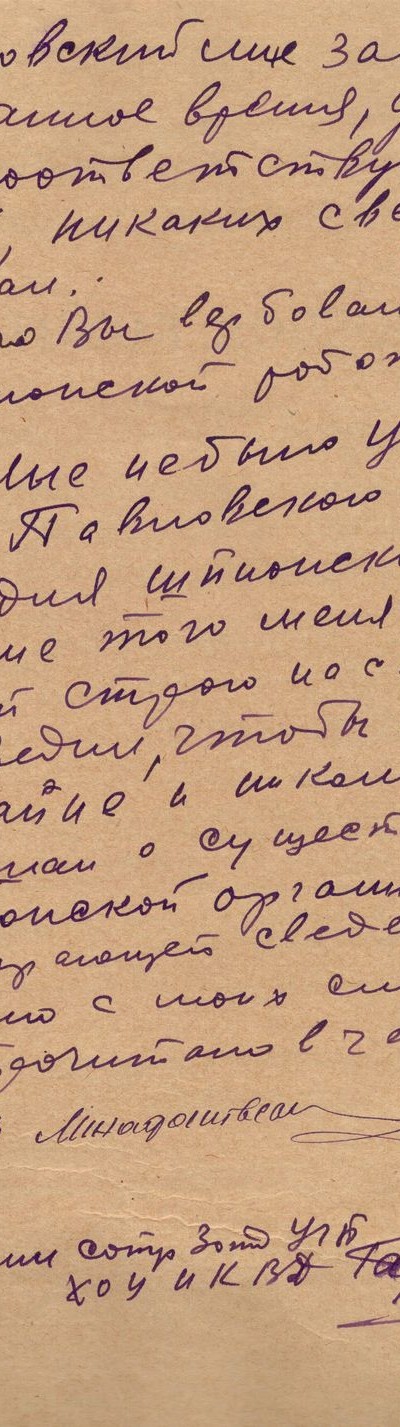 овский мне за
анное время, у
соответству
, никаких све
ал.
то Вы вербовал
пионской работ
мые небыло у
Павловского
дия шпионск
ме того меня
й строго нас
редил, чтобы
айне и никому
нал о сущест
онской органи
ирающей сведе
но с моих сл
прочитано в
Минадашвели
сотр 3 отд УГБ
ХОУ НКВД Га